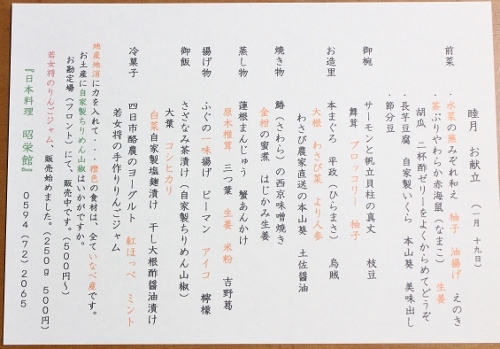 睦月 お献立 (一月 十九日)
前菜
・水菜の蕪みぞれ和え 柚子 油揚げ えのき
・茶ぶりやわらか赤海鼠(なまこ) 生姜
胡瓜 二杯酢ゼリーをよくからめてどうぞ
・長芋豆腐 自家製いくら 本山葵 美味出し
・節分豆
御椀
サーモンと帆立貝柱の真丈 枝豆
舞茸 ブロッコリー 柚子
お造里
本まぐろ 平政(ひらまさ) 烏賊
大根 わさび菜 より人参
わさび農家直送の本山葵 土佐醤油
焼き物
鰆(さわら)の西京味噌焼き
金柑の蜜煮 はじかみ生姜
蒸し物
蓮根まんじゅう 蟹あんかけ
原木椎茸 三つ葉 生姜 米粉 吉野葛
揚げ物
ふぐの一味揚げ ピーマン アイコ 檸檬
御飯
さざなみ茶漬け(自家製ちりめん山椒)
大葉 コシヒカリ
白菜自家製塩麹漬け 干し大根酢醤油漬け
冷菓子
四日市酪農のヨーグルト 紅ほっぺ ミント
若女将の手作りりんごジャム
地産地消に力を入れて・・・橙色の食材は、全ていなべ産です。
お土産に自家製ちりめん山椒はいかがですか。
お勘定場(フロント)にて、販売中です。(500円~)
若女将のりんごジャム、販売始めました。(250g 500円)
『日本料理 昭栄館』 0594(72)2065